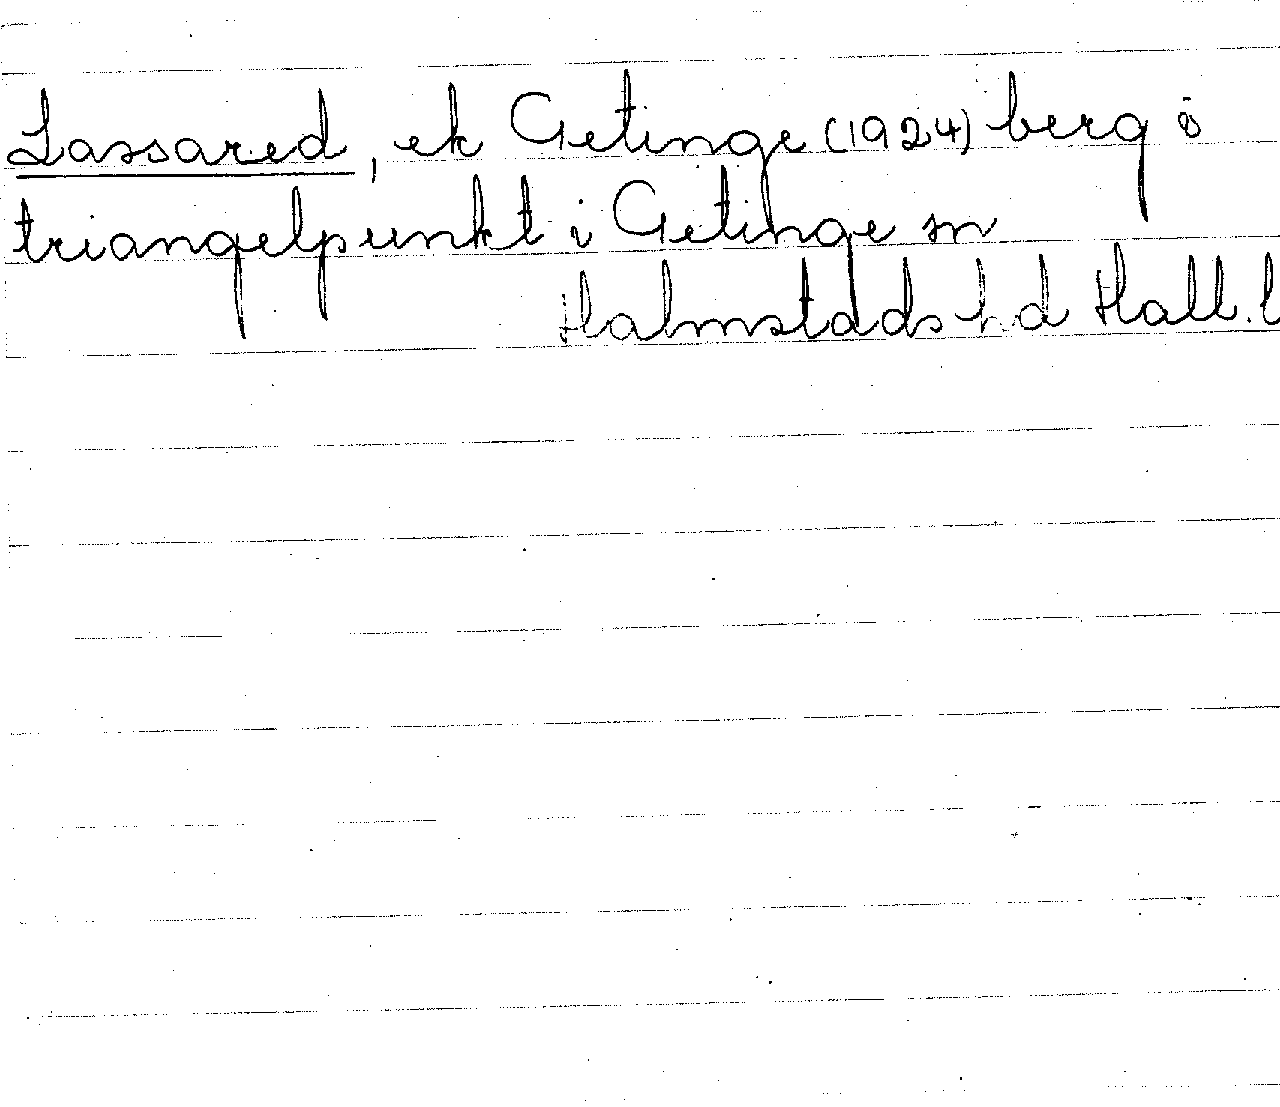 Lassared, ek Getinge (1924) berg o
triangelpunkt i Getinge sn
Halmstads hd Hall. l